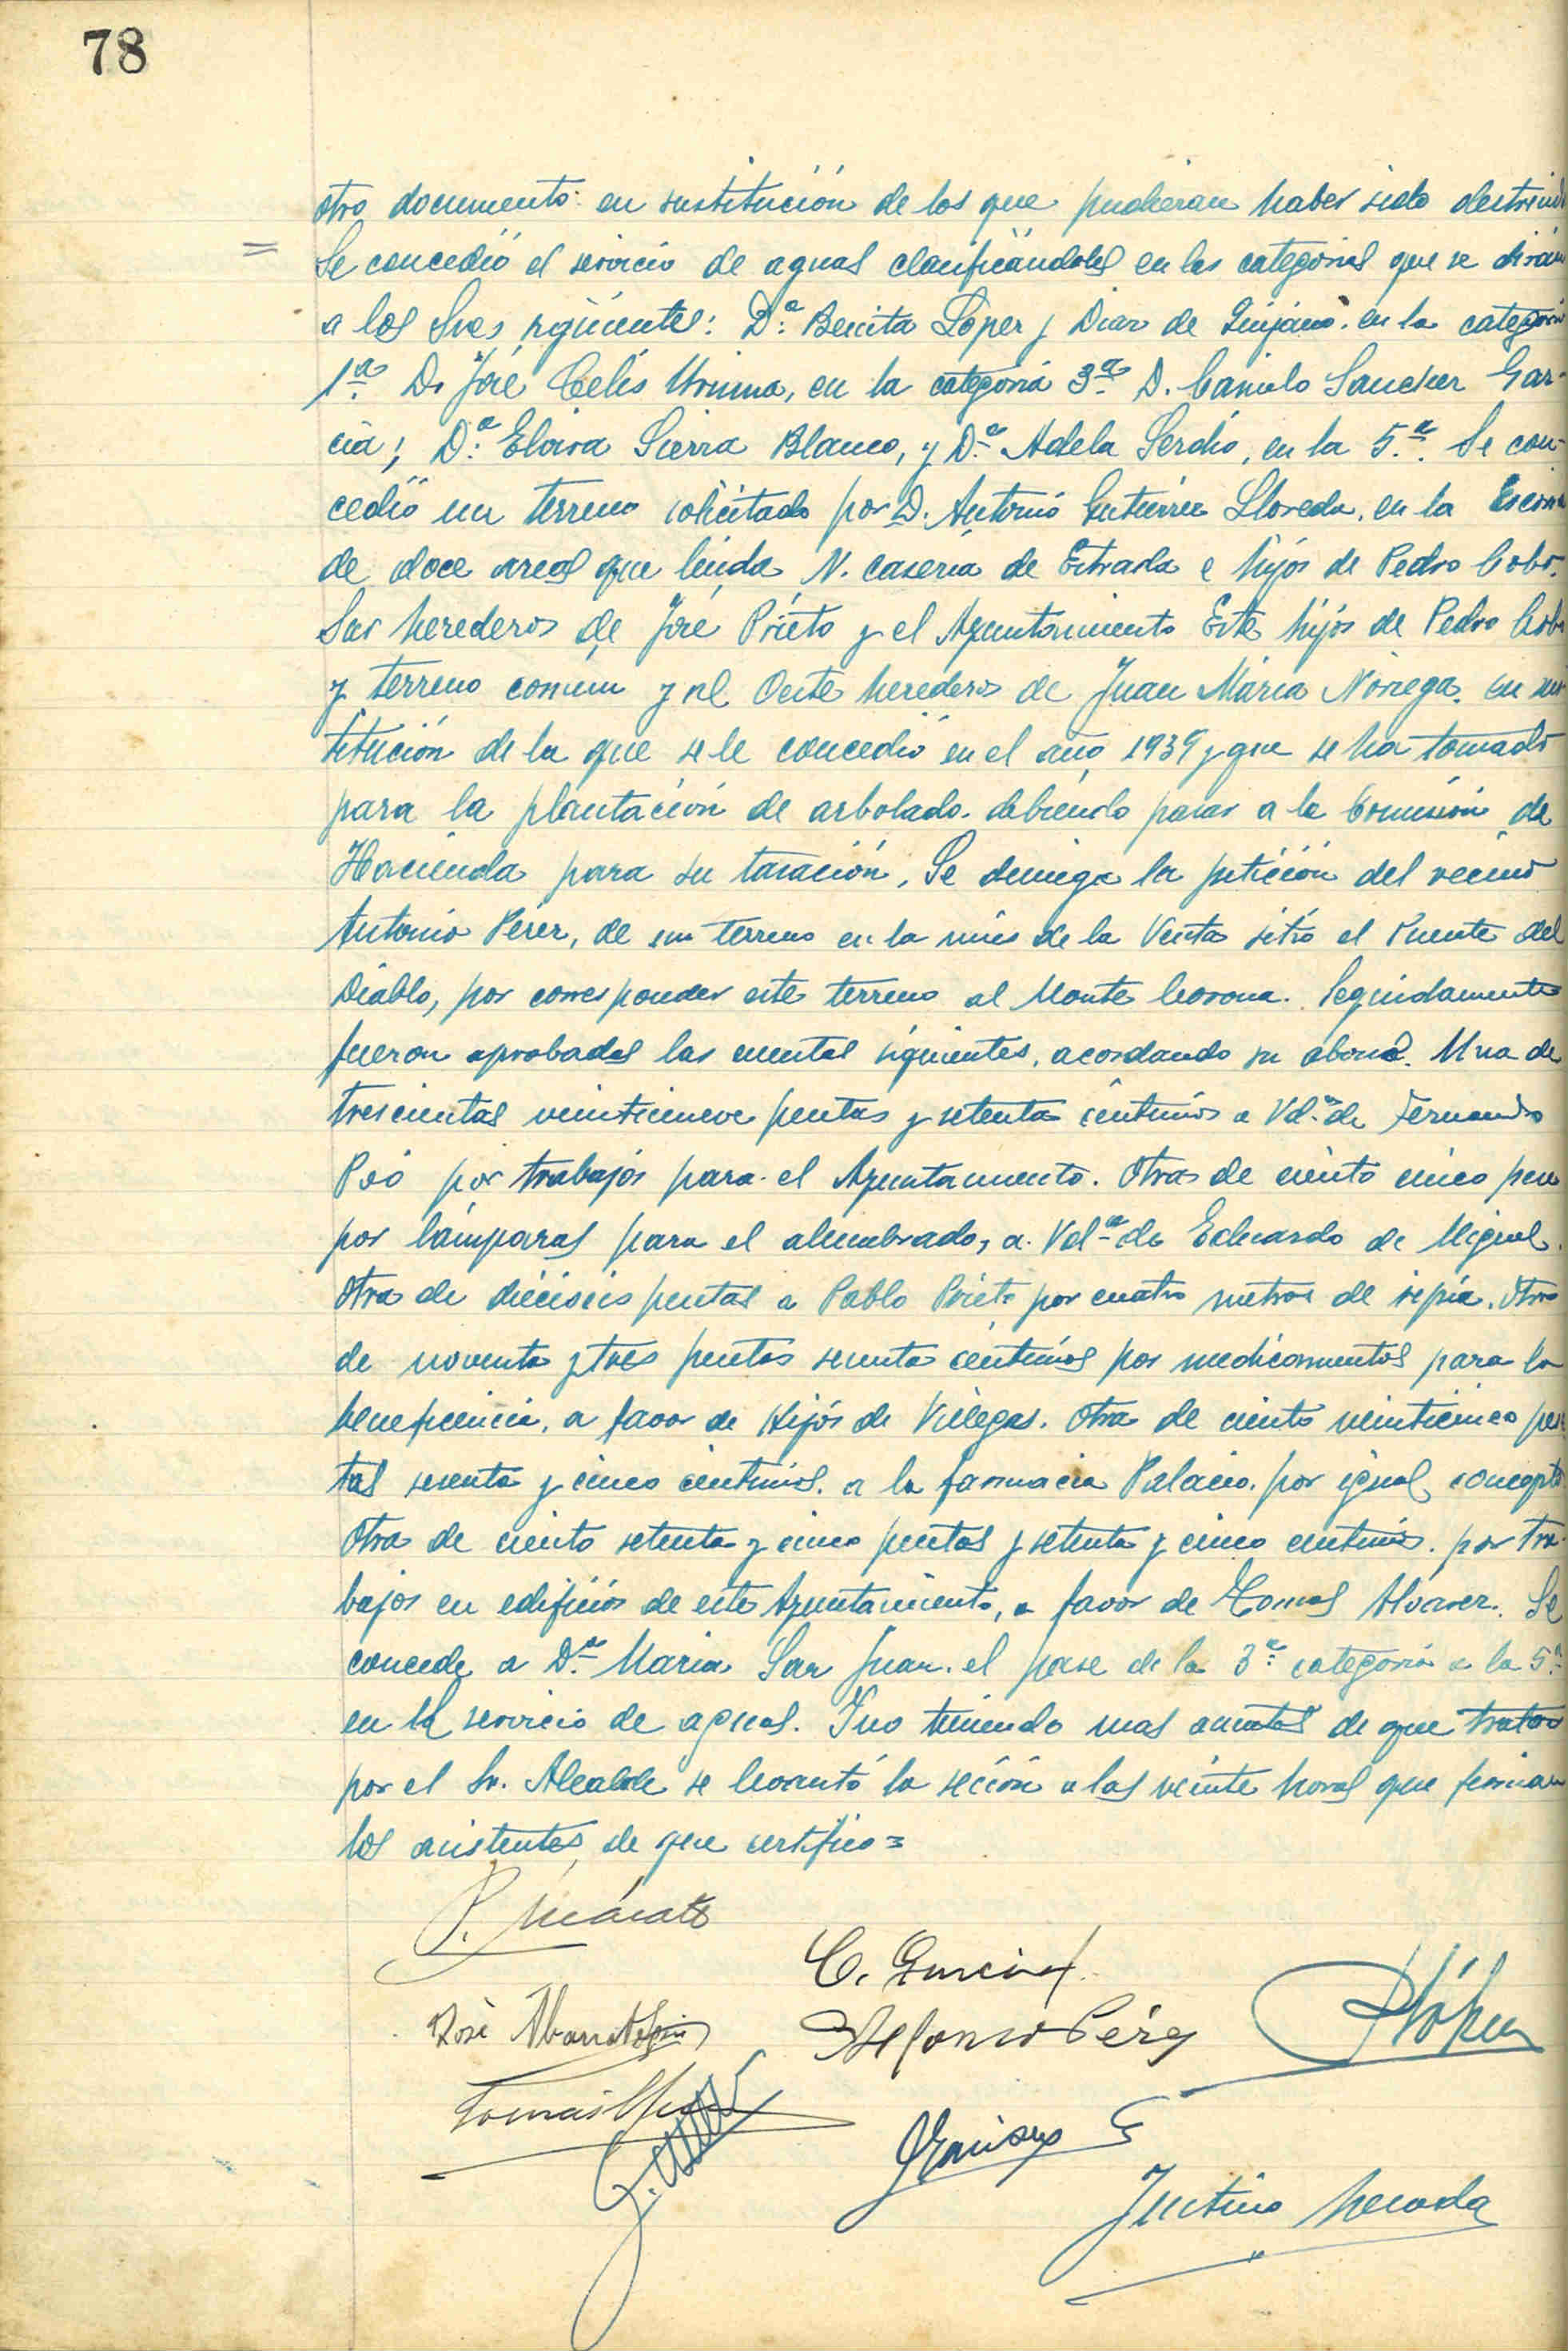 78
otro documento en sustitución de los que pudieran haber sido
Se concedió el servicio de aguas clasificándoles en las categorias que se dirán
a los Sres siguientes: D.ª Benita López y Diaz de Quijano. en la categoria
1.ª D. José Celis Urnima, en la categoria 3.ª D. Camilo Sanchez Gar-
cia; D.ª Eloisa Sierra Blanco, y D.ª Adela Serdio, en la 5.ª. Se con-
cedió un terreno solicitado por D. Antonio Gutierrez Lloreda, en la
de doce areas que linda N. caseria de Estrada e hijos de Pedro Cobo.
Sur herederos de José Prieto y el Ayuntamiento Este hijos de Pedro Cobo
y terreno comun y al Oeste herederos de Juan Maria Noriega. en sus-
titución de la que se le concedió en el año 1939 y que se ha tomado
para la plantación de arbolado. debiendo pasar a la Comisión de
Hacienda para su tasación. Se deniega la petición del vecino
Antonio Pérez, de un terreno en la mies de la Venta sitio el Puente del
Diablo, por corresponder este terreno al Monte Corona. Seguidamente
fueron aprobadas las cuentas siguientes, acordando su abono. Una de
trescientas veintinueve pesetas y setenta céntimos a Vd.ª de Fernando
Poó por trabajos para el Ayuntamiento. Otra de ciento cinco pese
por lámparas para el alumbrado, a Vd.ª de Eduardo de Miguel.
Otra de dieciseis pesetas a Pablo Prieto por cuatro metros de ripia. Otra
de noventa y tres pesetas sesenta céntimos por medicamentos para la
beneficencia, a favor de Hijos de Villegas. Otra de ciento veinticinco pese
tas sesenta y cinco céntimos. a la farmacia Palacio. por igual concepto
Otra de ciento setenta y cinco pesetas y setenta y cinco centimos. por tra-
bajos en edificios de este Ayuntamiento, a favor de Tomas Alvarez. Se
concede a D.ª Maria San Juan. el pase de la 3.ª categoria a la 5.ª
en el servicio de aguas. Y no teniendo mas asuntos de que tratar
por el Sr. Alcalde se levantó la seción a las veinte horas que firman
los asistentes, de que certifico=
P.
C.
José
Alfonso Pérez
Tomás
Justino